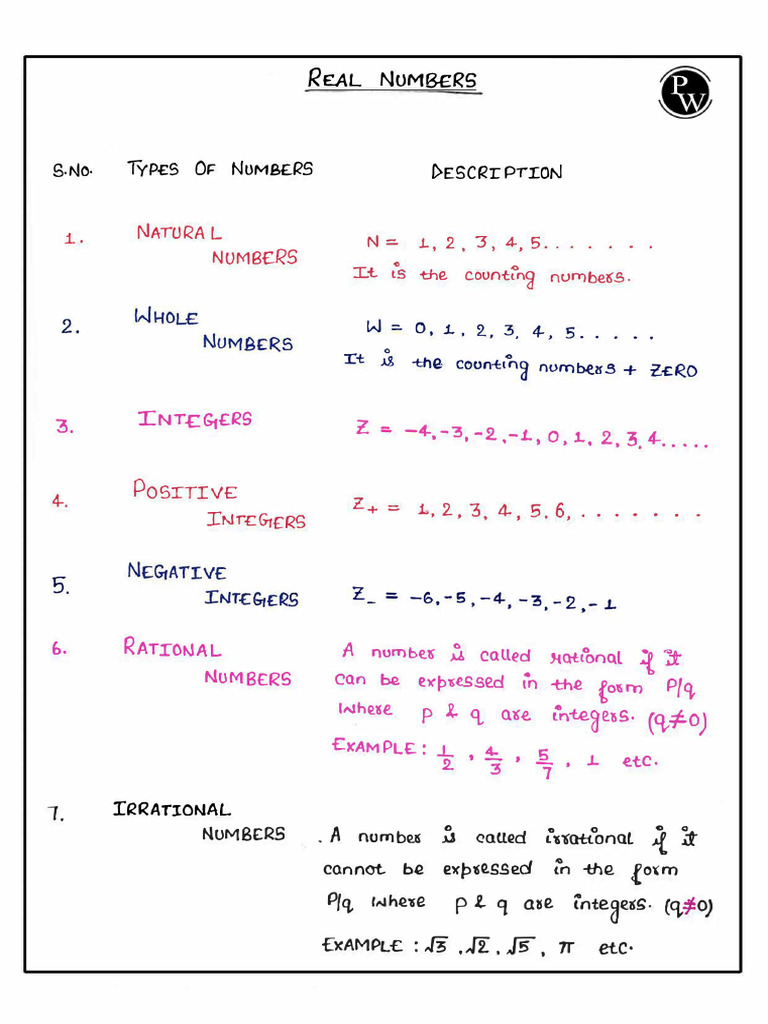 REAL NUMBERS
PW
S.NO. TYPES OF NUMBERS DESCRIPTION
1. NATURAL NUMBERS
N = 1, 2, 3, 4, 5.......
It is the counting numbers.
2. WHOLE NUMBERS
W = 0, 1, 2, 3, 4, 5.....
It is the counting numbers + ZERO
3. INTEGERS
Z = -4, -3, -2, -1, 0, 1, 2, 3, 4.....
4. POSITIVE INTEGERS
Z+ = 1, 2, 3, 4, 5, 6, .......
5. NEGATIVE INTEGERS
Z_ = -6, -5, -4, -3, -2, -1
6. RATIONAL NUMBERS
A number is called rational if it
can be expressed in the form P/q
Where p & q are integers. (q≠0)
EXAMPLE: 1/2, 4/3, 5/7, 1 etc.
7. IRRATIONAL NUMBERS
. A number is called irrational if it
cannot be expressed in the form
P/q Where p & q are integers. (q≠0)
EXAMPLE: √3, √2, √5, π etc.